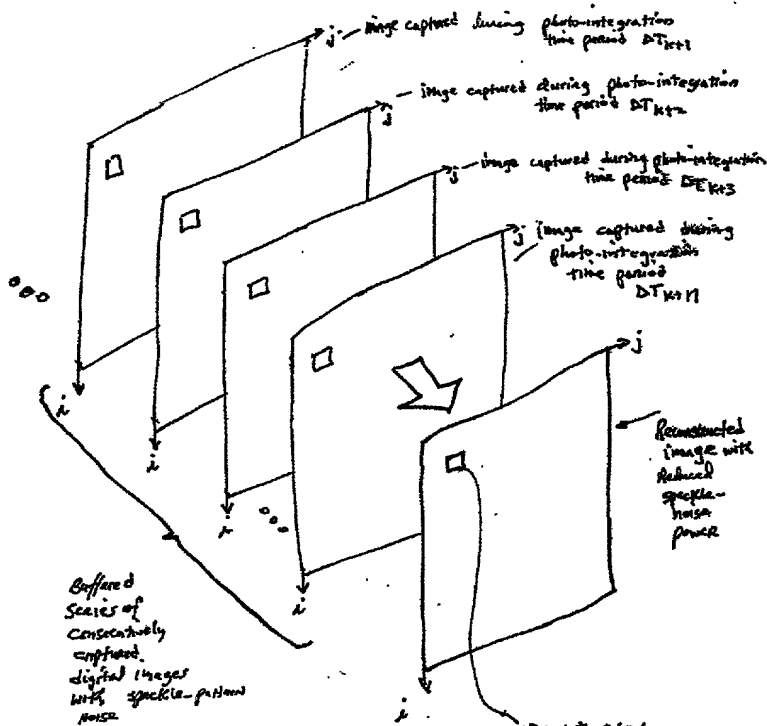 j image captured during photo-integration
time period ΔTk+1
j image captured during photo-integration
time period ΔTk+2
j image captured during photo-integration
time period ΔTk+3
j image captured during
photo-integration
time period
ΔTk+n
j
i
i
i
i
i
Reconstructed
image with
Reduced
speckle-
noise
power
Buffered
Series of
Consecutively
captured
digital images
with speckle-pattern
noise